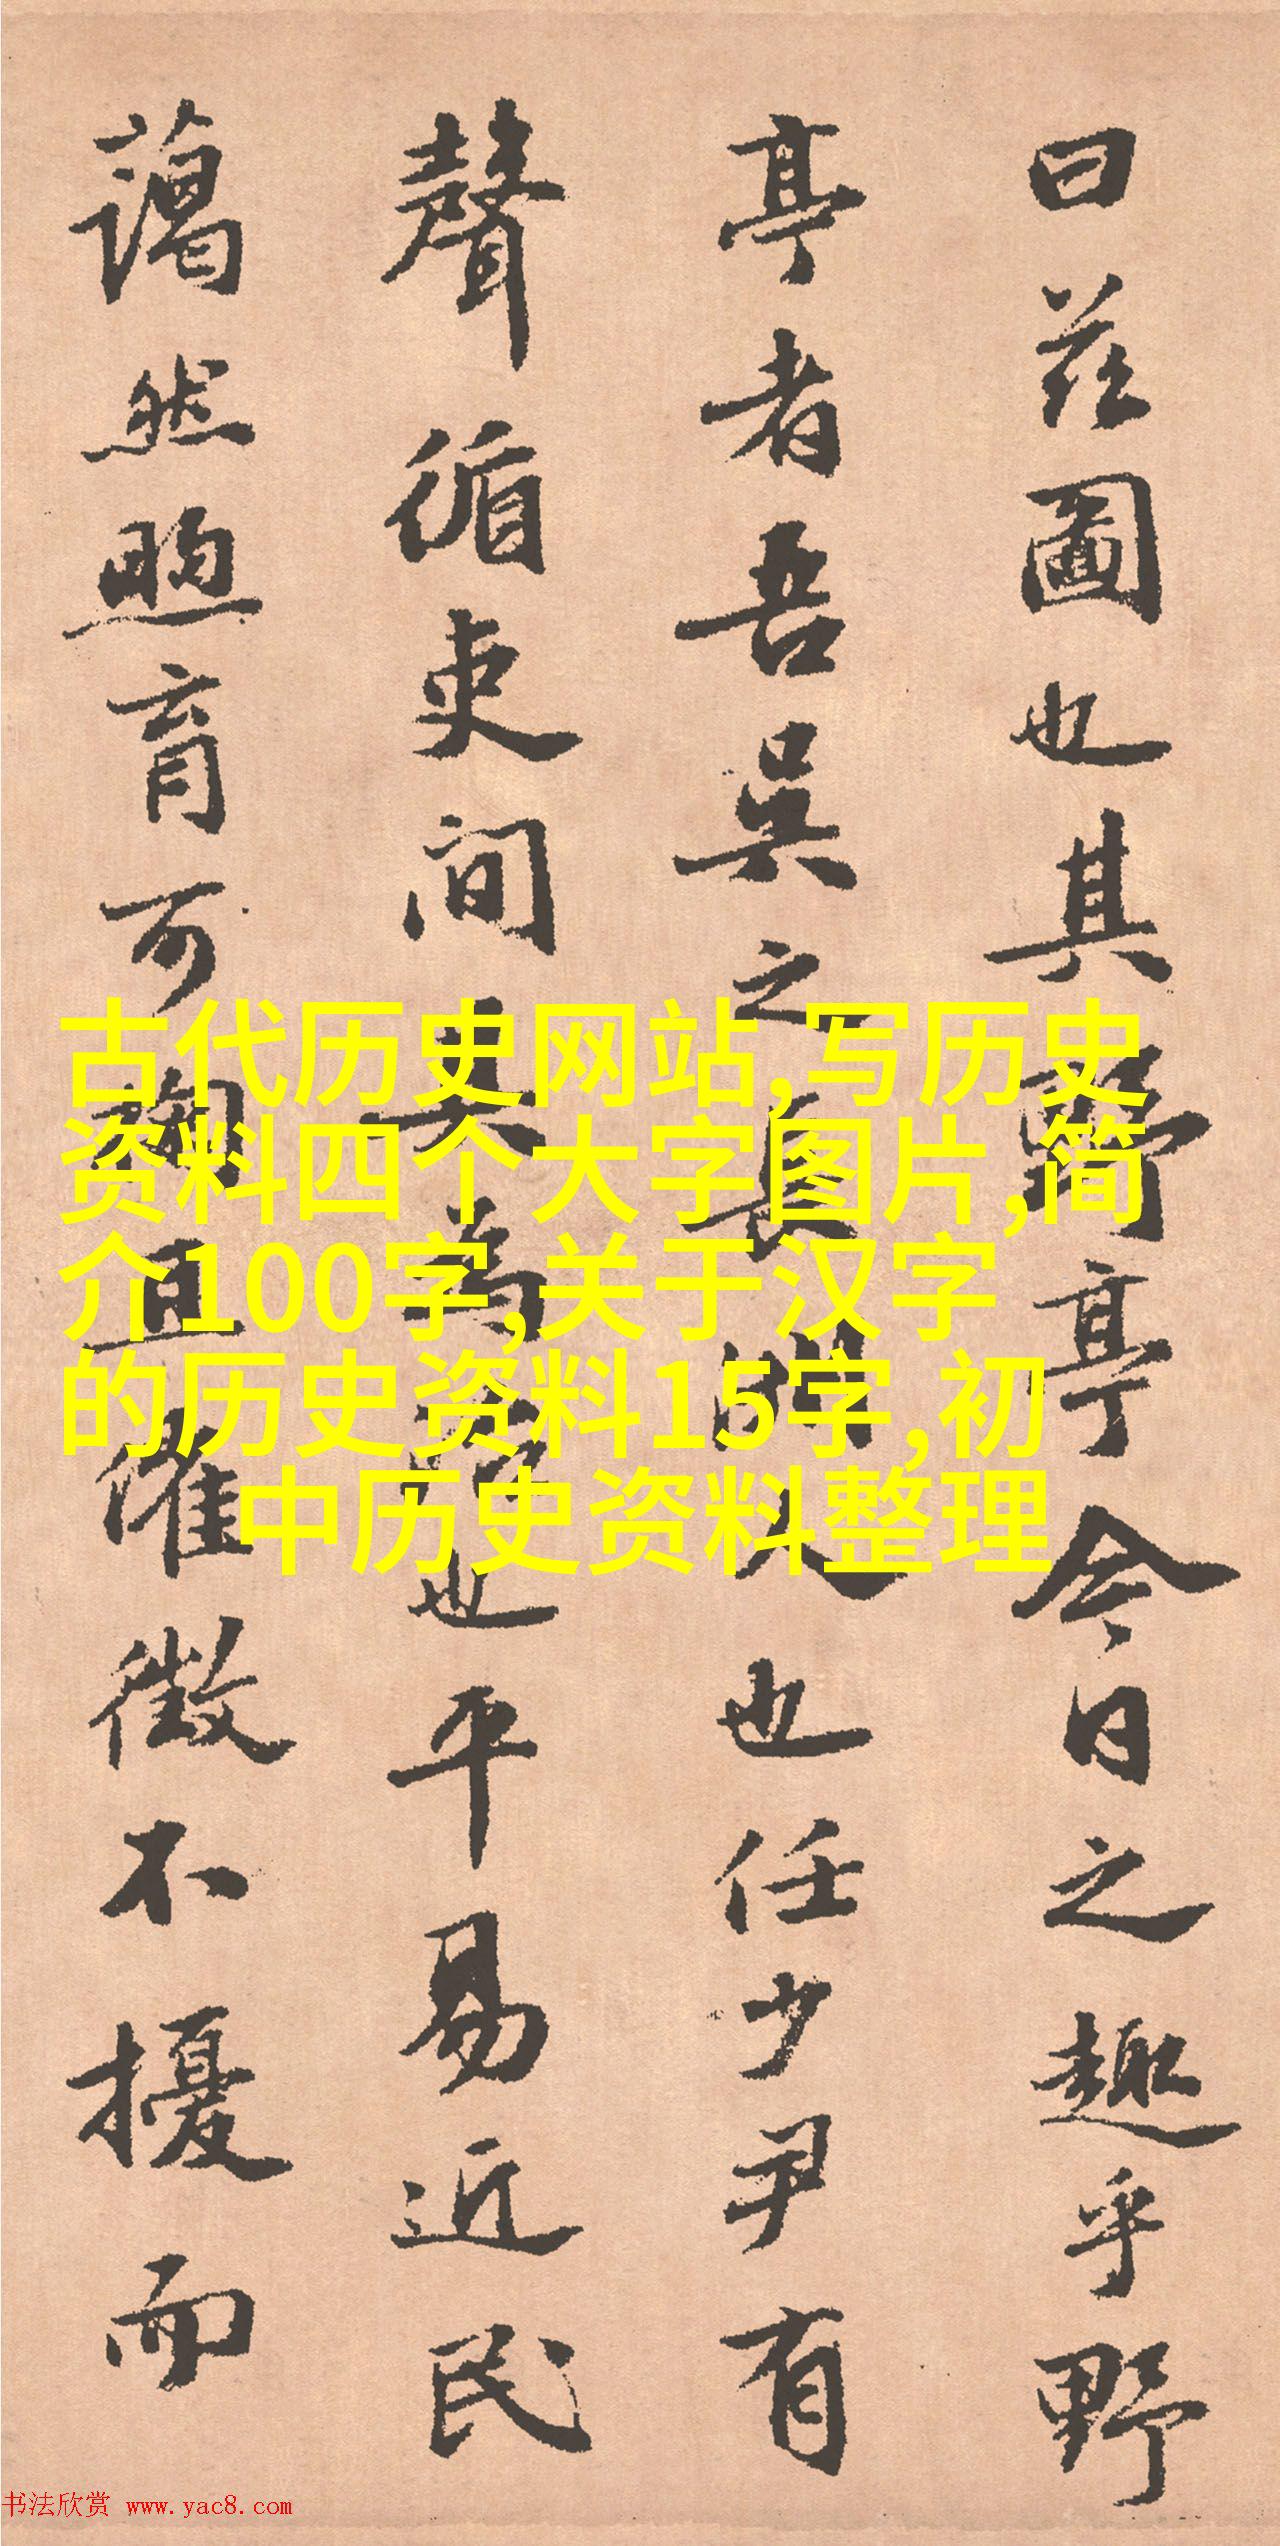 曰茲圖也其野亭今日之趣乎野
亭者吾吳之長洲人也任少尹有
聲循吏间其為
也平易近民
藹然煦育可陶且
催徵不擾而
古代历史网站,写历史
资料四个大字图片,简
介100字,关于汉字
的历史资料15字,初
中历史资料整理
书法欣赏 www.yac8.com